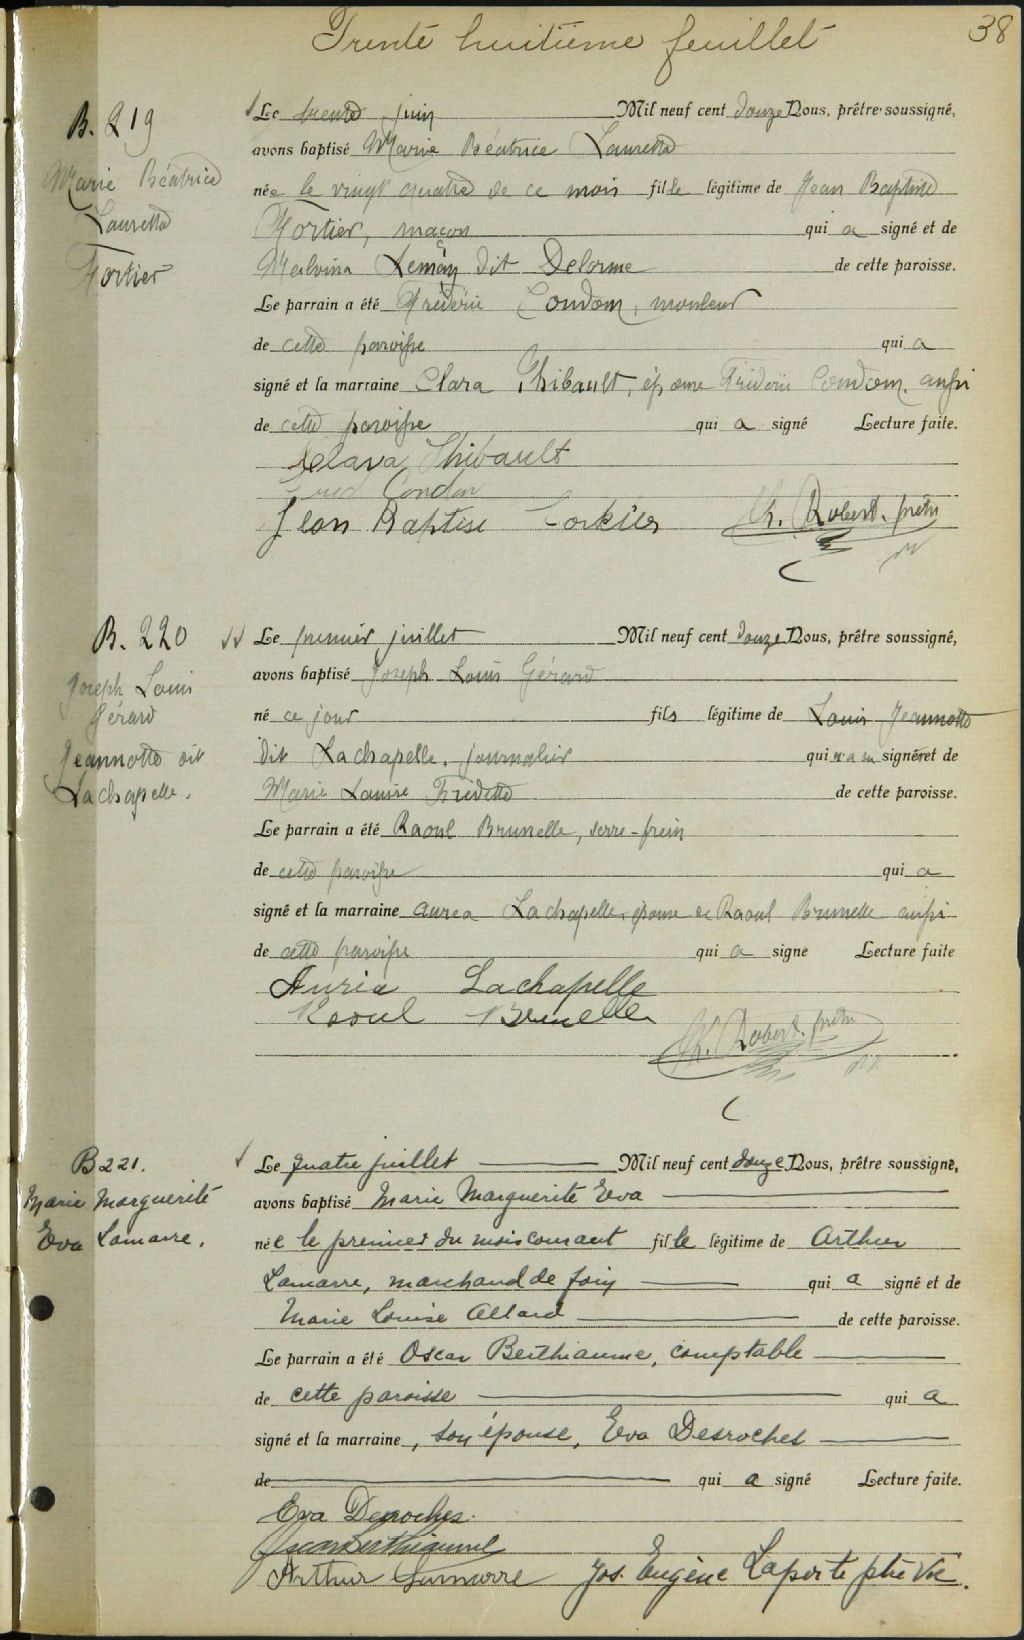 Trente huitième feuillet 38
B. 219
Marie Béatrice
Lauretta
Fortier
Le trente juin Mil neuf cent douze Nous, prêtre soussigné,
avons baptisé Marie Béatrice Lauretta
née le vingt quatre de ce mois fille légitime de Jean Baptiste
Fortier, maçon qui a signé et de
Malvina Lemay dit Delorme de cette paroisse.
Le parrain a été Fréderic Condom, mouleur
de cette paroisse qui a
signé et la marraine Clara Thibault, épouse Fréderic Condom, aussi
de cette paroisse qui a signé Lecture faite.
Clara Thibault
Fred Condon
Jean Baptise Fortier Ch. Robert. prêtre
B. 220
Joseph Louis
Gérard
Jeannotte dit
Lachapelle.
Le premier juillet Mil neuf cent douze Nous, prêtre soussigné,
avons baptisé Joseph Louis Gérard
né ce jour fils légitime de Louis Jeannotte
dit Lachapelle, journalier qui n'a su signer et de
Marie Louise Fredette de cette paroisse.
Le parrain a été Raoul Brunelle, serre-frein
de cette paroisse qui a
signé et la marraine Aurea Lachapelle épouse de Raoul Brunelle aussi
de cette paroisse qui a signé Lecture faite
Auréa Lachapelle
Raoul Brunelle
Ch. Robert. prêtre
B 221.
Marie Marguerite
Eva Lamarre.
Le quatre juillet Mil neuf cent douze Nous, prêtre soussigné,
avons baptisé Marie Marguerite Eva
née le premier du mois courant fille légitime de Arthur
Lamarre, marchand de foin qui a signé et de
Marie Louise Allard de cette paroisse.
Le parrain a été Oscar Berthiaume, comptable
de cette paroisse qui a
signé et la marraine, son épouse, Eva Desroches
de qui a signé Lecture faite.
Eva Desroches
Oscar Berthiaume
Arthur Lamarre Jos. Eugène Laporte ptre Vic.